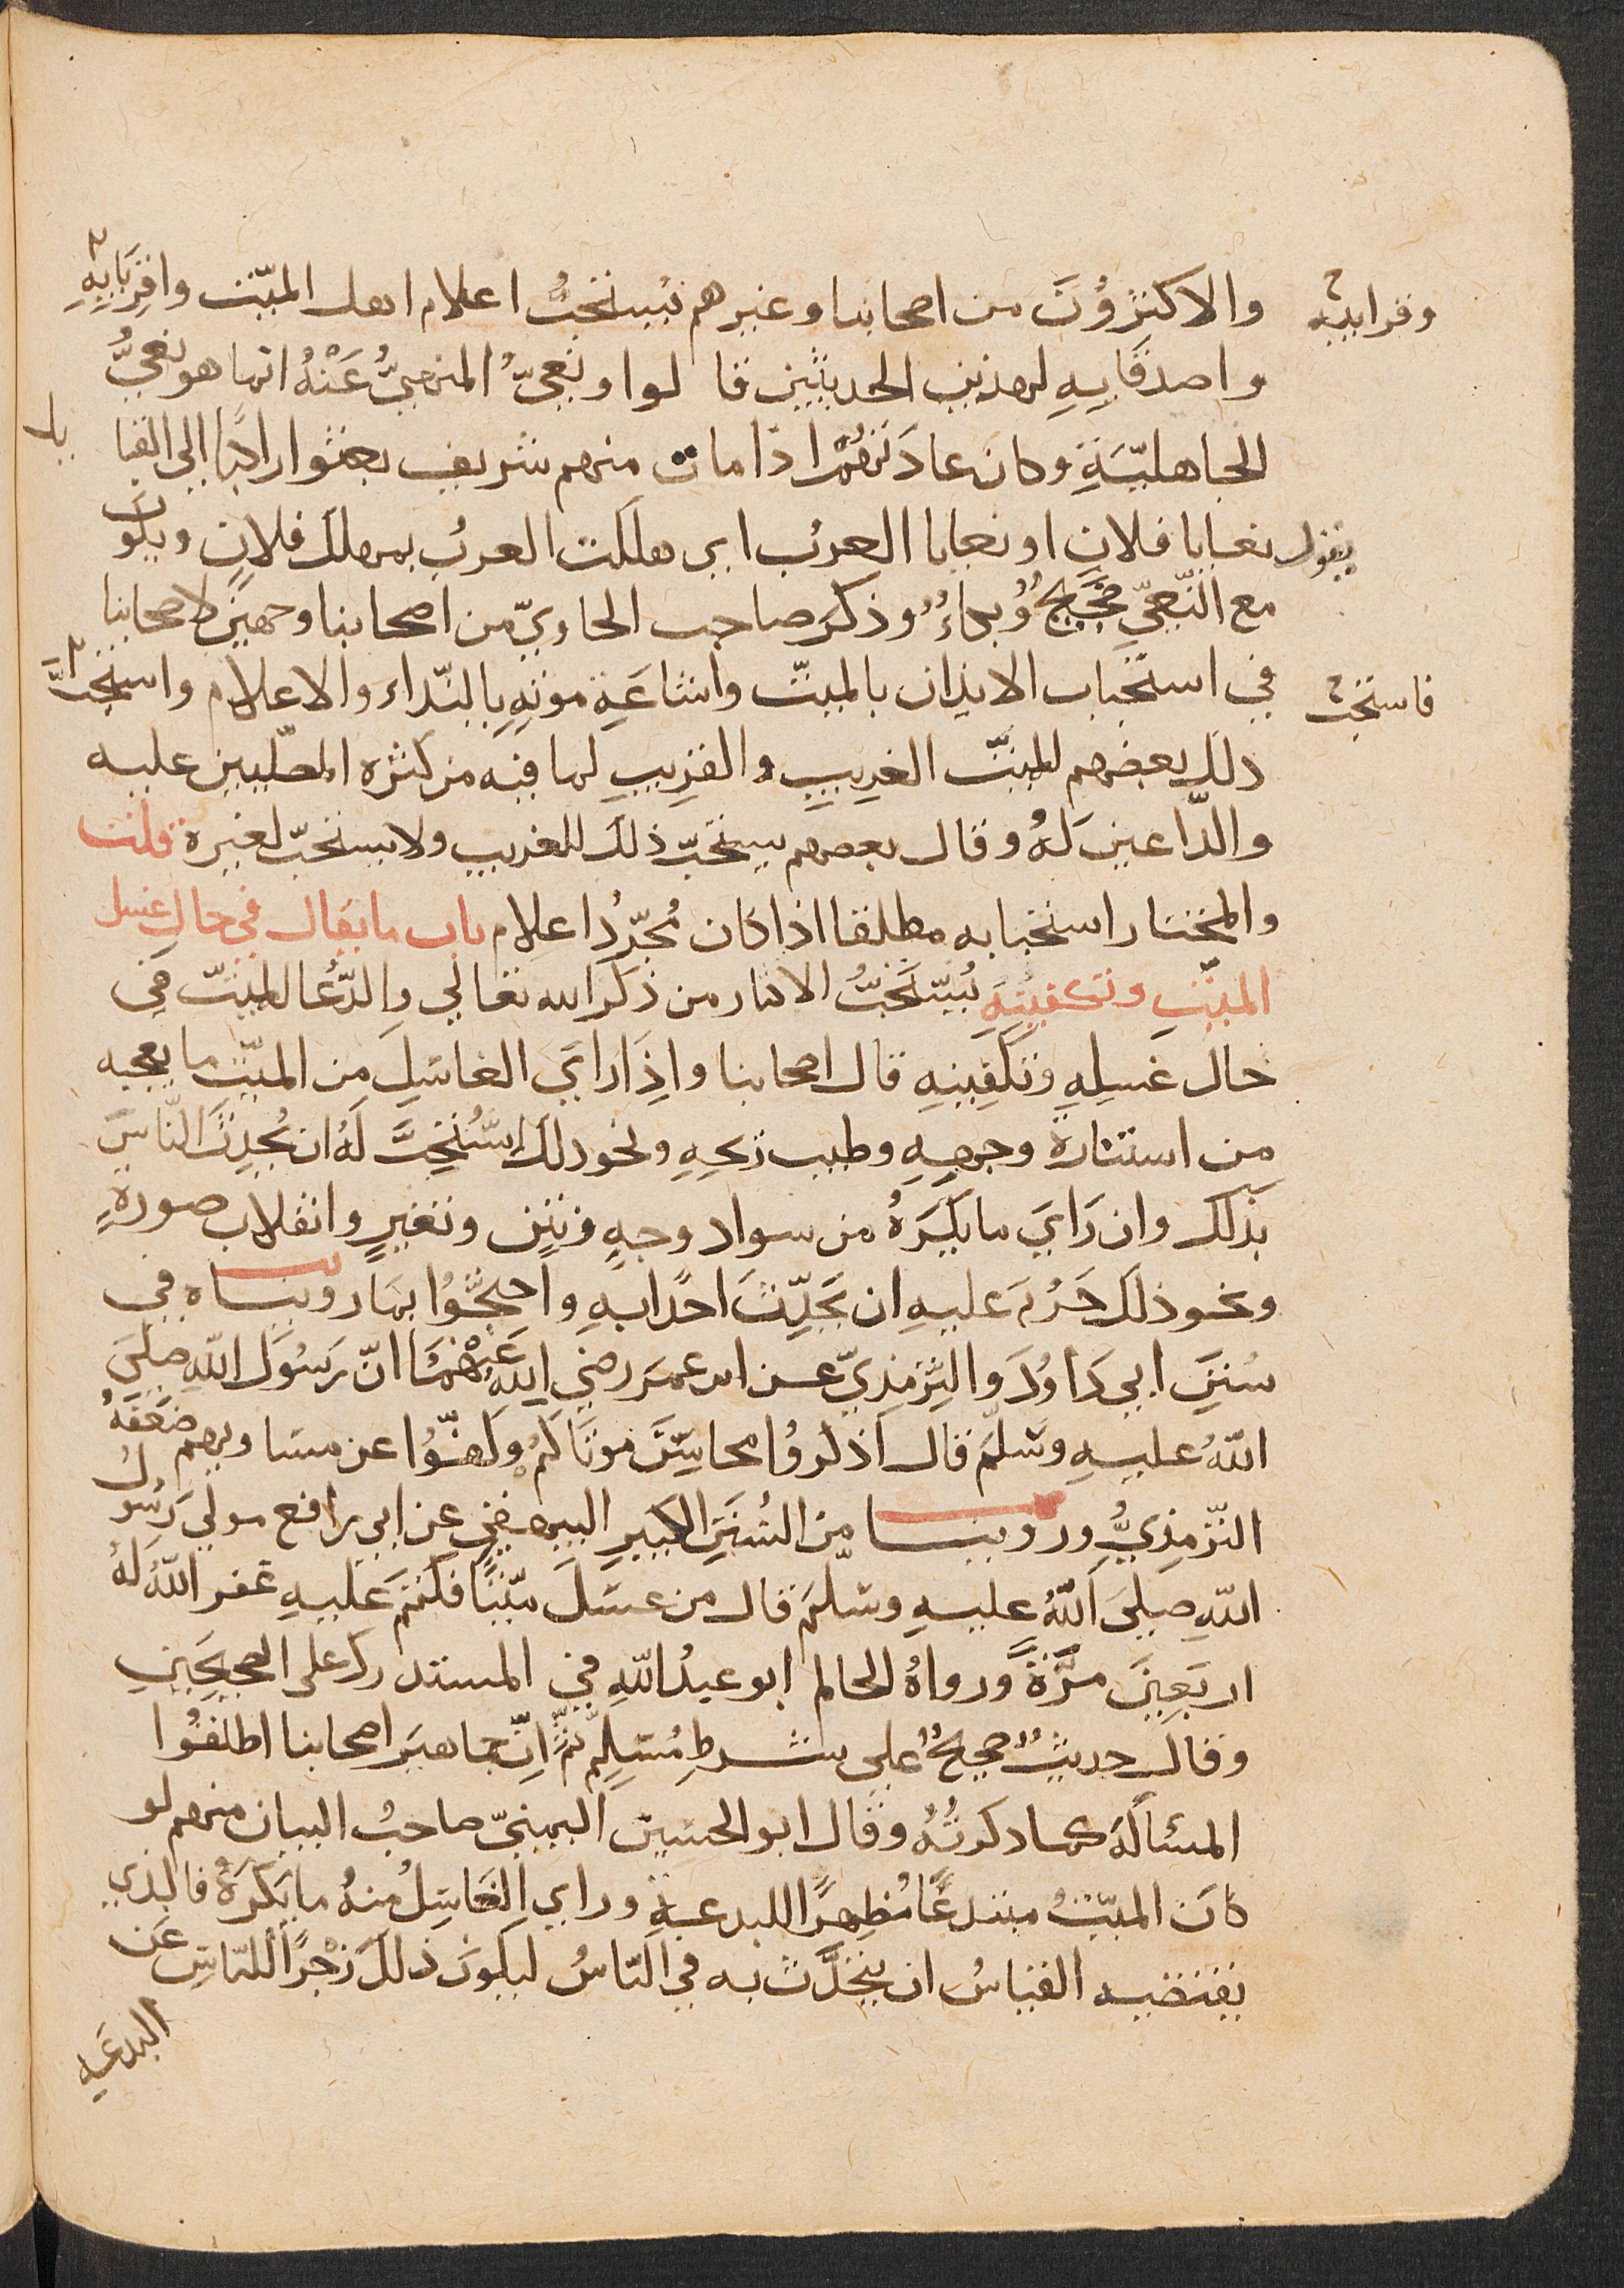 والاكثرُوُنَ من اصحابنا وغيرهم يُستحبُ اعلام اهل الميّت واقِرَبَايِهِ
وقرابيه
واصدقَايِهِ لهذين الحديثين قالوا ونعيُّ المنهيُّ عَنْهُ انما هو نعيُّ
الجاهليّةِ وكان عادَتهُمُ اذا مات منهم شريف بعثوا راكبًا الى القبا
يل
يقول نعايا فلان او نعايا العرب اي هلكت العرب بمهلك فلان ويكون
مع النّعيّ ضجيجٌ وُبكاءٌ وذكَر صاحب الحاويّ من اصحابنا وجهين لاصحابنا
في استحباب الايذان بالميت واشاعَةِ موتهِ بالنّداء والاعلام واستحبَّ
فاستحب
ذلك بعضهم للميّت الغريبِ والقريبِ لما فيه من كثره المصلّيين عليه
والدّاعينَ لهُ وقال بعضهم يستحبّ ذلك للغريب ولا يستحبّ لغيره قلت
والمختار استحبابه مطلقا اذا كان مُجرّدُ اعلام باب ما يقال في حالِ غسل
الميّتِ وتكفينهِ يُستَحبُّ الاكثار من ذكر الله تعالي والدّعُا للميّت في
حال غَسلِهِ وتكفِينِهِ قال اصحابنا واذَا رَايَ الغاسِلِ مِن الميّت ما يعجبه
من استنارة وجهِهِ وطيب ريحِهِ ونحو ذلك اسْتُحِبَّ لهُ ان يُحدِثَ النّاسَ
بذلَك وان رَايَ ما يَكرَهُ من سواد وجهٍ ونتن وتغيرٍ وانقلاب صورةٍ
ونحو ذلك حَرُمَ عليهِ ان يحَدِّثَ احدًا بهِ واحتجُّوُا بما رويناه في
سُننِ ابي دَاوُدَ والتِّرمذِيّ عن ابن عمرَ رضي اللهِ عَنْهُمَا انّ رَسُولَ اللهِ صلىَ
اللّهُ عليهِ وسَلّمَ قال اذكروُا محاسِنَ موتَاكُمْ وكفّوُا عن مساويهم ضعّفهُ
التّرمِذِيُّ وروينا من السُننِ الكبيرِ البيهقي عن ابي رافع مولي رَسُول
اللهِ صلىَ اللّهُ عليهِ وسَلمَ قال من غسَلَ ميّتًا فكتمَ عَليهِ غفر اللّهُ لهُ
اربَعِينَ مَرّةً ورواهُ الحاكم ابو عبدُ اللّهِ في المستدرك على الصحيحَينِ
وقال حديثٌ صحيحٌ على شرطِ مُسلِمٍ ثمَّ انّ جماهيرَ اصحابنا اطلقوُا
المسئالَة كما ذكرتُهُ وقال ابو الحسين اليمنيّ صاحبُ البيان منهم لو
كانَ الميّتُ مبتدعًا مُظهِرًا للبدعةِ وراي الغَاسِلُ منهُ ما يكرَهُ فالذي
يقتضيه القياسُ ان يتحَدّثَ به في النّاسُ ليكونَ ذلكَ زجْرًا للنّاسِ عَن
البدعَه